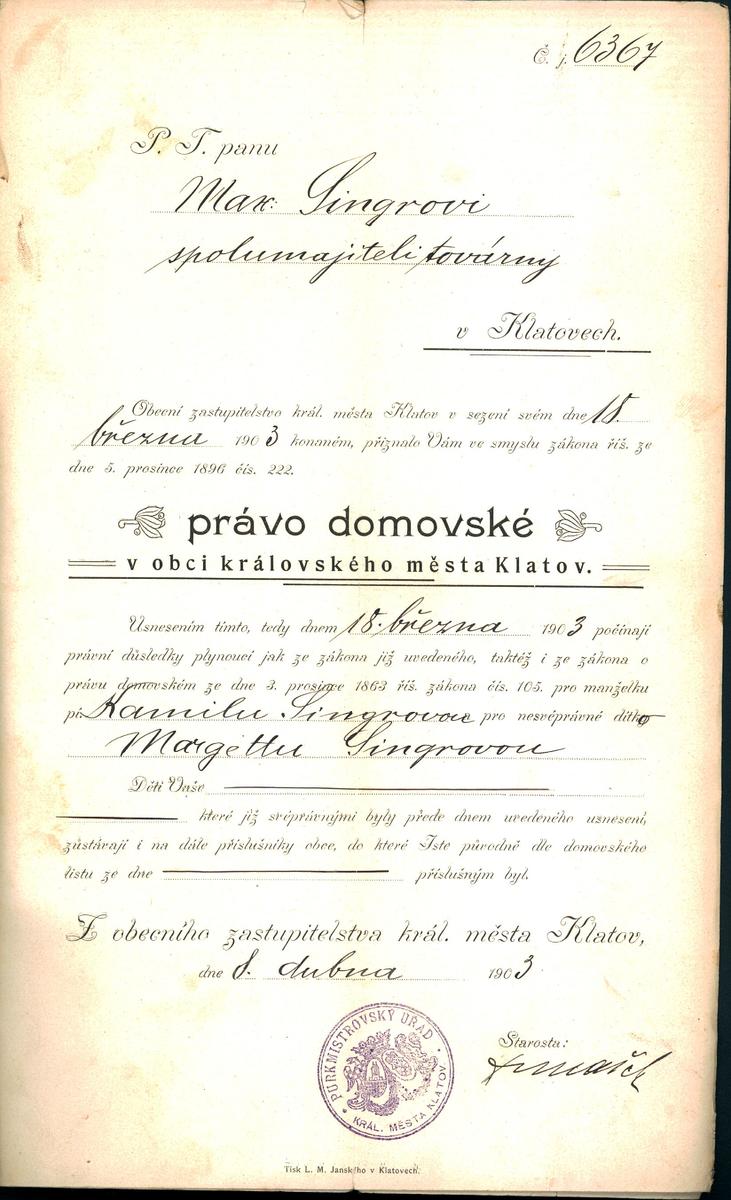 Č. j. 6367
P. T. panu
Max. Singrovi
spolumajiteli továrny
v Klatovech.
Obecní zastupitelstvo král. města Klatov v sezení svém dne 18.
března 1903 konaném, přiznalo Vám ve smyslu zákona říš. ze
dne 5. prosince 1896 čís. 222.
právo domovské
v obci královského města Klatov.
Usnesením tímto, tedy dnem 18. března 1903 počínají
právní důsledky plynoucí jak ze zákona již uvedeného, taktéž i ze zákona o
právu domovském ze dne 3. prosince 1863 říš. zákona čís. 105. pro manželku
pí. Kamilu Singrovou pro nesvéprávné dítko
Margettu Singrovou
Děti Vaše
které již svéprávnými byly přede dnem uvedeného usnesení,
zůstávají i na dále příslušníky obce, do které Jste původně dle domovského
listu ze dne příslušným byl.
Z obecního zastupitelstva král. města Klatov,
dne 8. dubna 1903
PURKMISTROVSKÝ ÚŘAD
KRÁL. MĚSTA KLATOV
Starosta:
Tisk L. M. Janského v Klatovech.